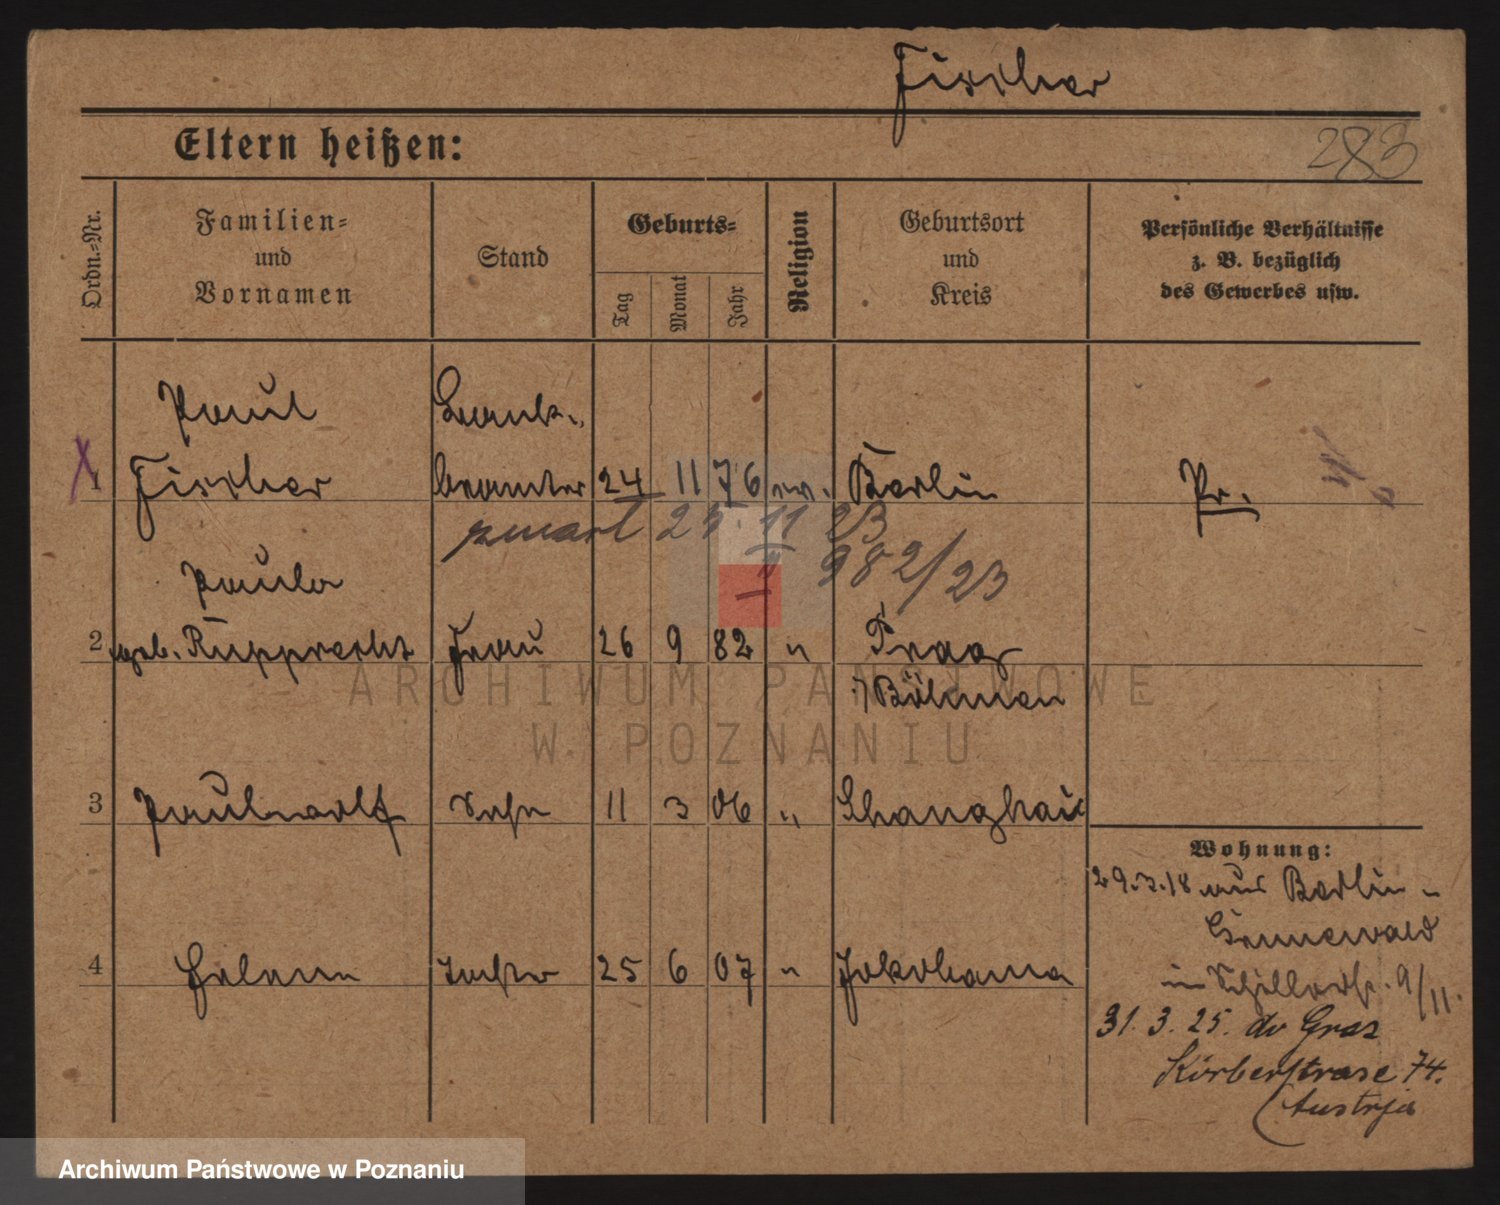 Fischer
Eltern heißen:
283
Ordn.-Nr.
Familien-
und
Vornamen
Stand
Geburts-
Tag
Monat
Jahr
Religion
Geburtsort
und
Kreis
Persönliche Verhältnisse
z. B. bezüglich
des Gewerbes usw.
Paul
Bank-
1 Fischer beamter 24 11 76 ev. Berlin Pr.
zmarł 25 11 23
II 982/23
Paula
2 geb. Rupprecht Frau 26 9 82 " Prag
Böhmen
3 Paulrolf Sohn 11 3 06 " Shanghai
Wohnung:
29.3.18 aus Berlin-
Grunewald
4 Helene Tochter 25 6 07 " Jokohama
Schillerstr. 9/II.
31. 3. 25. do Graz
Körberstrase 74.
Austrja
ARCHIWUM PAŃSTWOWE
W POZNANIU
Archiwum Państwowe w Poznaniu